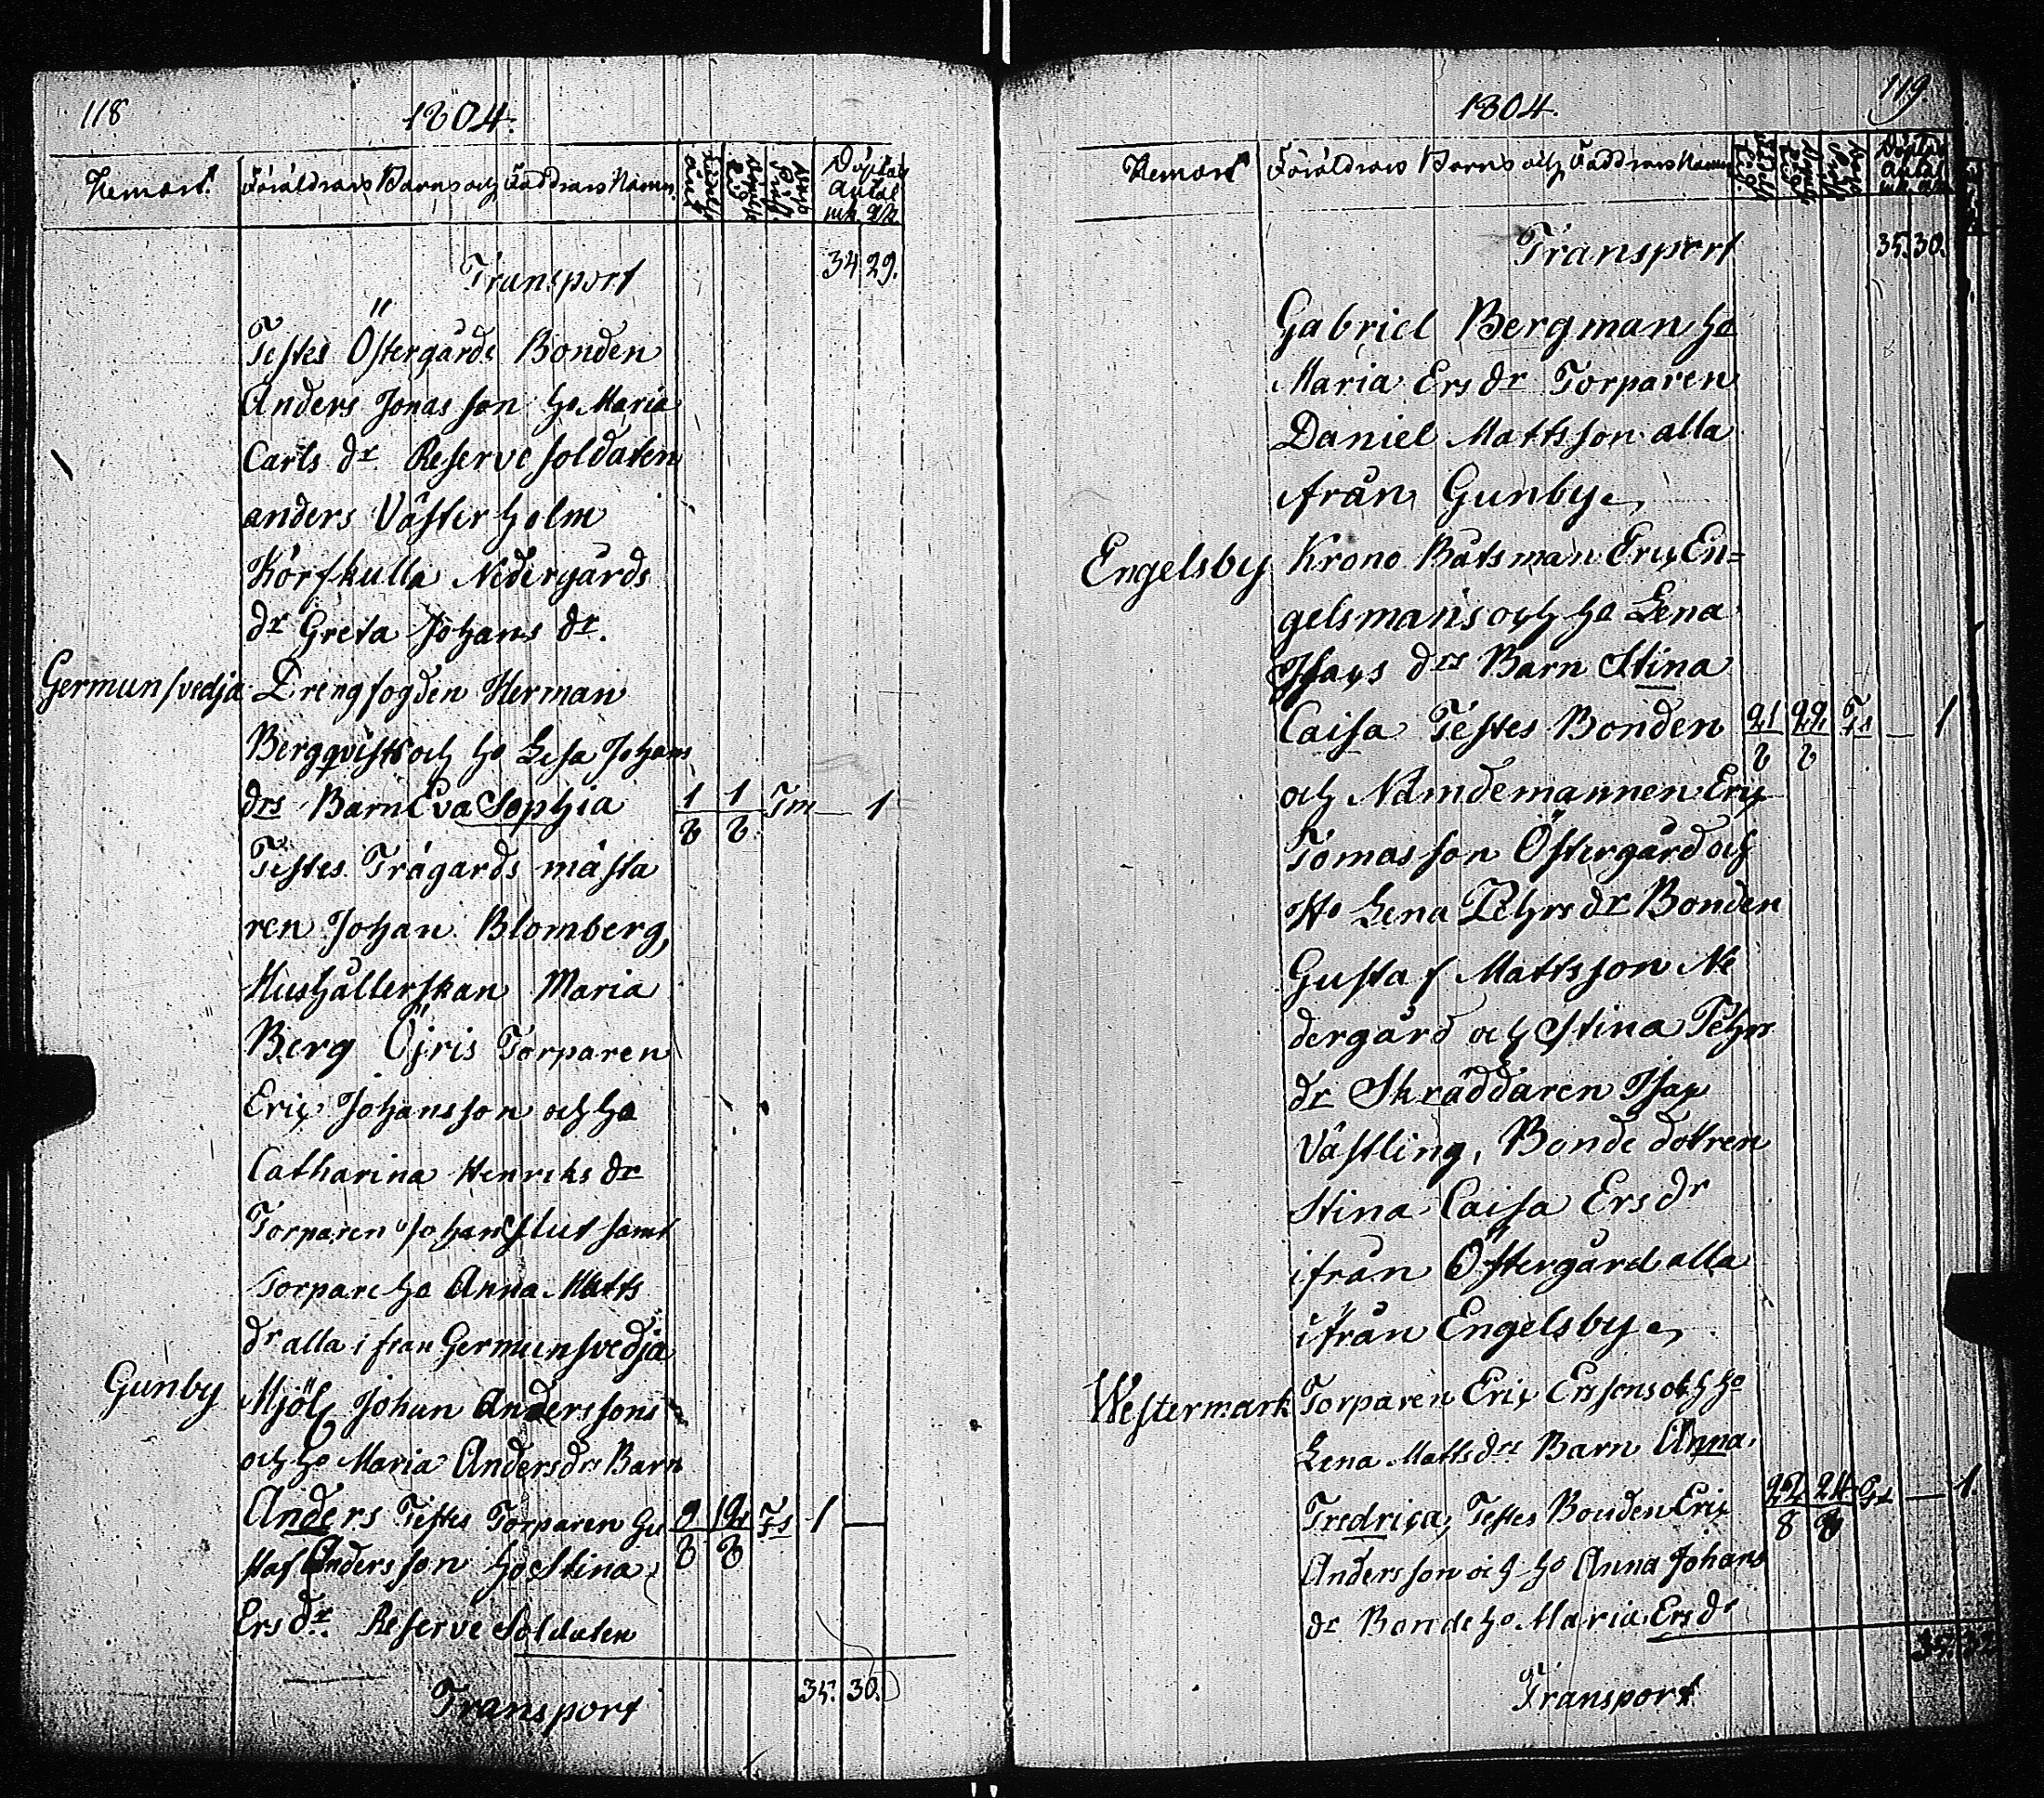 118
1804.
Hemort. Föräldrars Barns och Faddrars Namn
Döptas
Antal
mk. qk.
Transport 34 29.
Testes Östergårds Bonden
Anders Jonas son ho Maria
Carls dr Reserve soldaten
anders Väster holm
Körfkulla Nedergårds
dr Greta Johans dr.
Germunsvedja Drengfogden Herman
Bergqvists och ho Lisa Johans
drs Barn Eva Sophia 1/8 1/8 Tm — 1
Testes Trägårds mästa
ren Johan Blomberg,
Hushållerskan Maria
Berg Öjris Torparen
Eric Johansson och ho
Catharina Henriks dr
Torparen Johan Slut samt
torpare ho Anna Matts
dr alla i från Germunsvedja
Gunby Mjöln Johan Anderssons
och ho Maria Andersdrs Barn
Anders Testes Torparen Gu 9/8 12/8 Ts 1 —
staf Andersson ho Stina
Ers dr. Reserve Soldaten
Transport 35. 30.
119.
1804.
Hemort Föräldrars Barns och Faddrars Namn
Döptas
Antal
mk. qk.
Transport 35. 30.
Gabriel Bergman ho
Maria Ers dr Torparen
Daniel Mattsson alla
ifrån Gunby
Engelsby Krono Båtsman Eric En=
gelsmans och ho Lena
Isacs drs Barn Stina
Caisa Testes Bonden 21/8 22/8 Ts — 1
och Nämdemannen Eric
Tomas son Östergård och
Ho Lena Pehrs dr Bonden
Gustaf Mattsson Ne
dergård och Stina Pehrs
dr Skräddaren Isac
Västling, Bonde dottren
Stina Caisa Ers dr
ifrån Östergård alla
ifrån Engelsby
Westermark Torparen Eric Ersons och ho
Lena Matts drs Barn Anna
Fredrica, Testes Bonden Eric 22/8 24/8 — 1.
Andersson och ho Anna Johans
dr Bonde ho Maria Ers dr
Transport